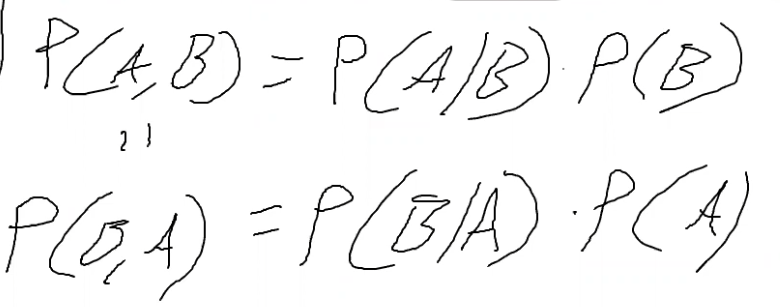 P(A,B) = P(A/B) · P(B)
21
P(B,A) = P(B/A) · P(A)